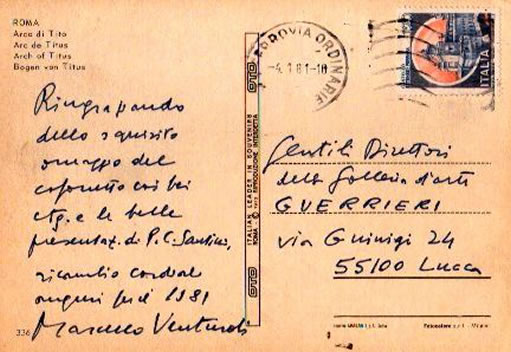 ROMA
Arco di Tito
Arc de Titus
Arch of Titus
Bogen von Titus
Ringraziando
dello squisito
omaggio del
cofanetto coi bei
e le belle
presentaz. di P.C. Santini,
ricambio cordiali
auguri per il 1981
Marcello Venturoli
336
ITALIAN LEADER IN SOUVENIRS
OTO
ROMA
RIPRODUZIONE INTERDETTA
OTO
FERROVIA ORDINARIE
-4.1.81-18
ITALIA
Gentili Direttori
della Galleria d'arte
GUERRIERI
via Guinigi 24
55100 Lucca